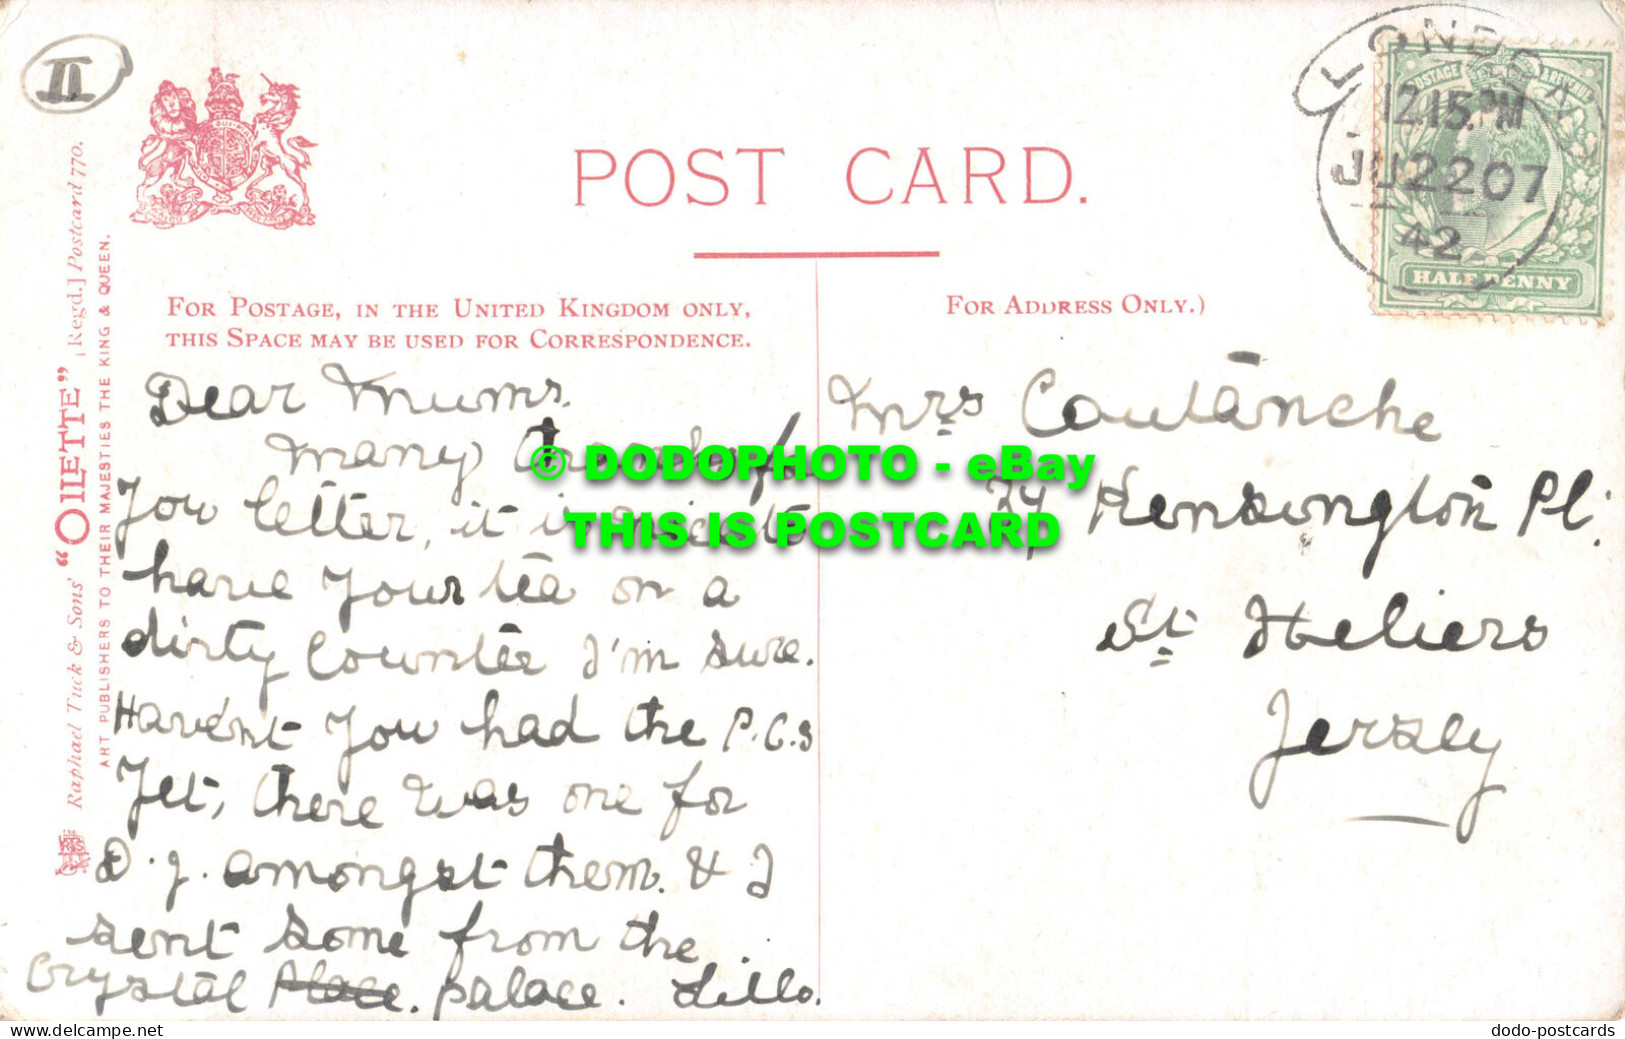 II
POST CARD.
LONDON
12.15.PM
JU 22 07
42
POSTAGE & REVENUE
HALF PENNY
Raphael Tuck & Sons' "OILETTE" [Regd.] Postcard 770.
ART PUBLISHERS TO THEIR MAJESTIES THE KING & QUEEN.
FOR POSTAGE, IN THE UNITED KINGDOM ONLY,
THIS SPACE MAY BE USED FOR CORRESPONDENCE.
FOR ADDRESS ONLY.)
Dear Mums.
Many
You letter, it is nice to
have your tea on a
dirty Countee I'm sure.
Haven't you had the P.C.s
Yet, there was one for
D.J. amongst them. & I
sent some from the
Crystal Place. palace. Lillo.
Mrs Coutanche
Kensington Pl.
St Heliers
Jersey
© DODOPHOTO - eBay
THIS IS POSTCARD
www.delcampe.net
dodo-postcards